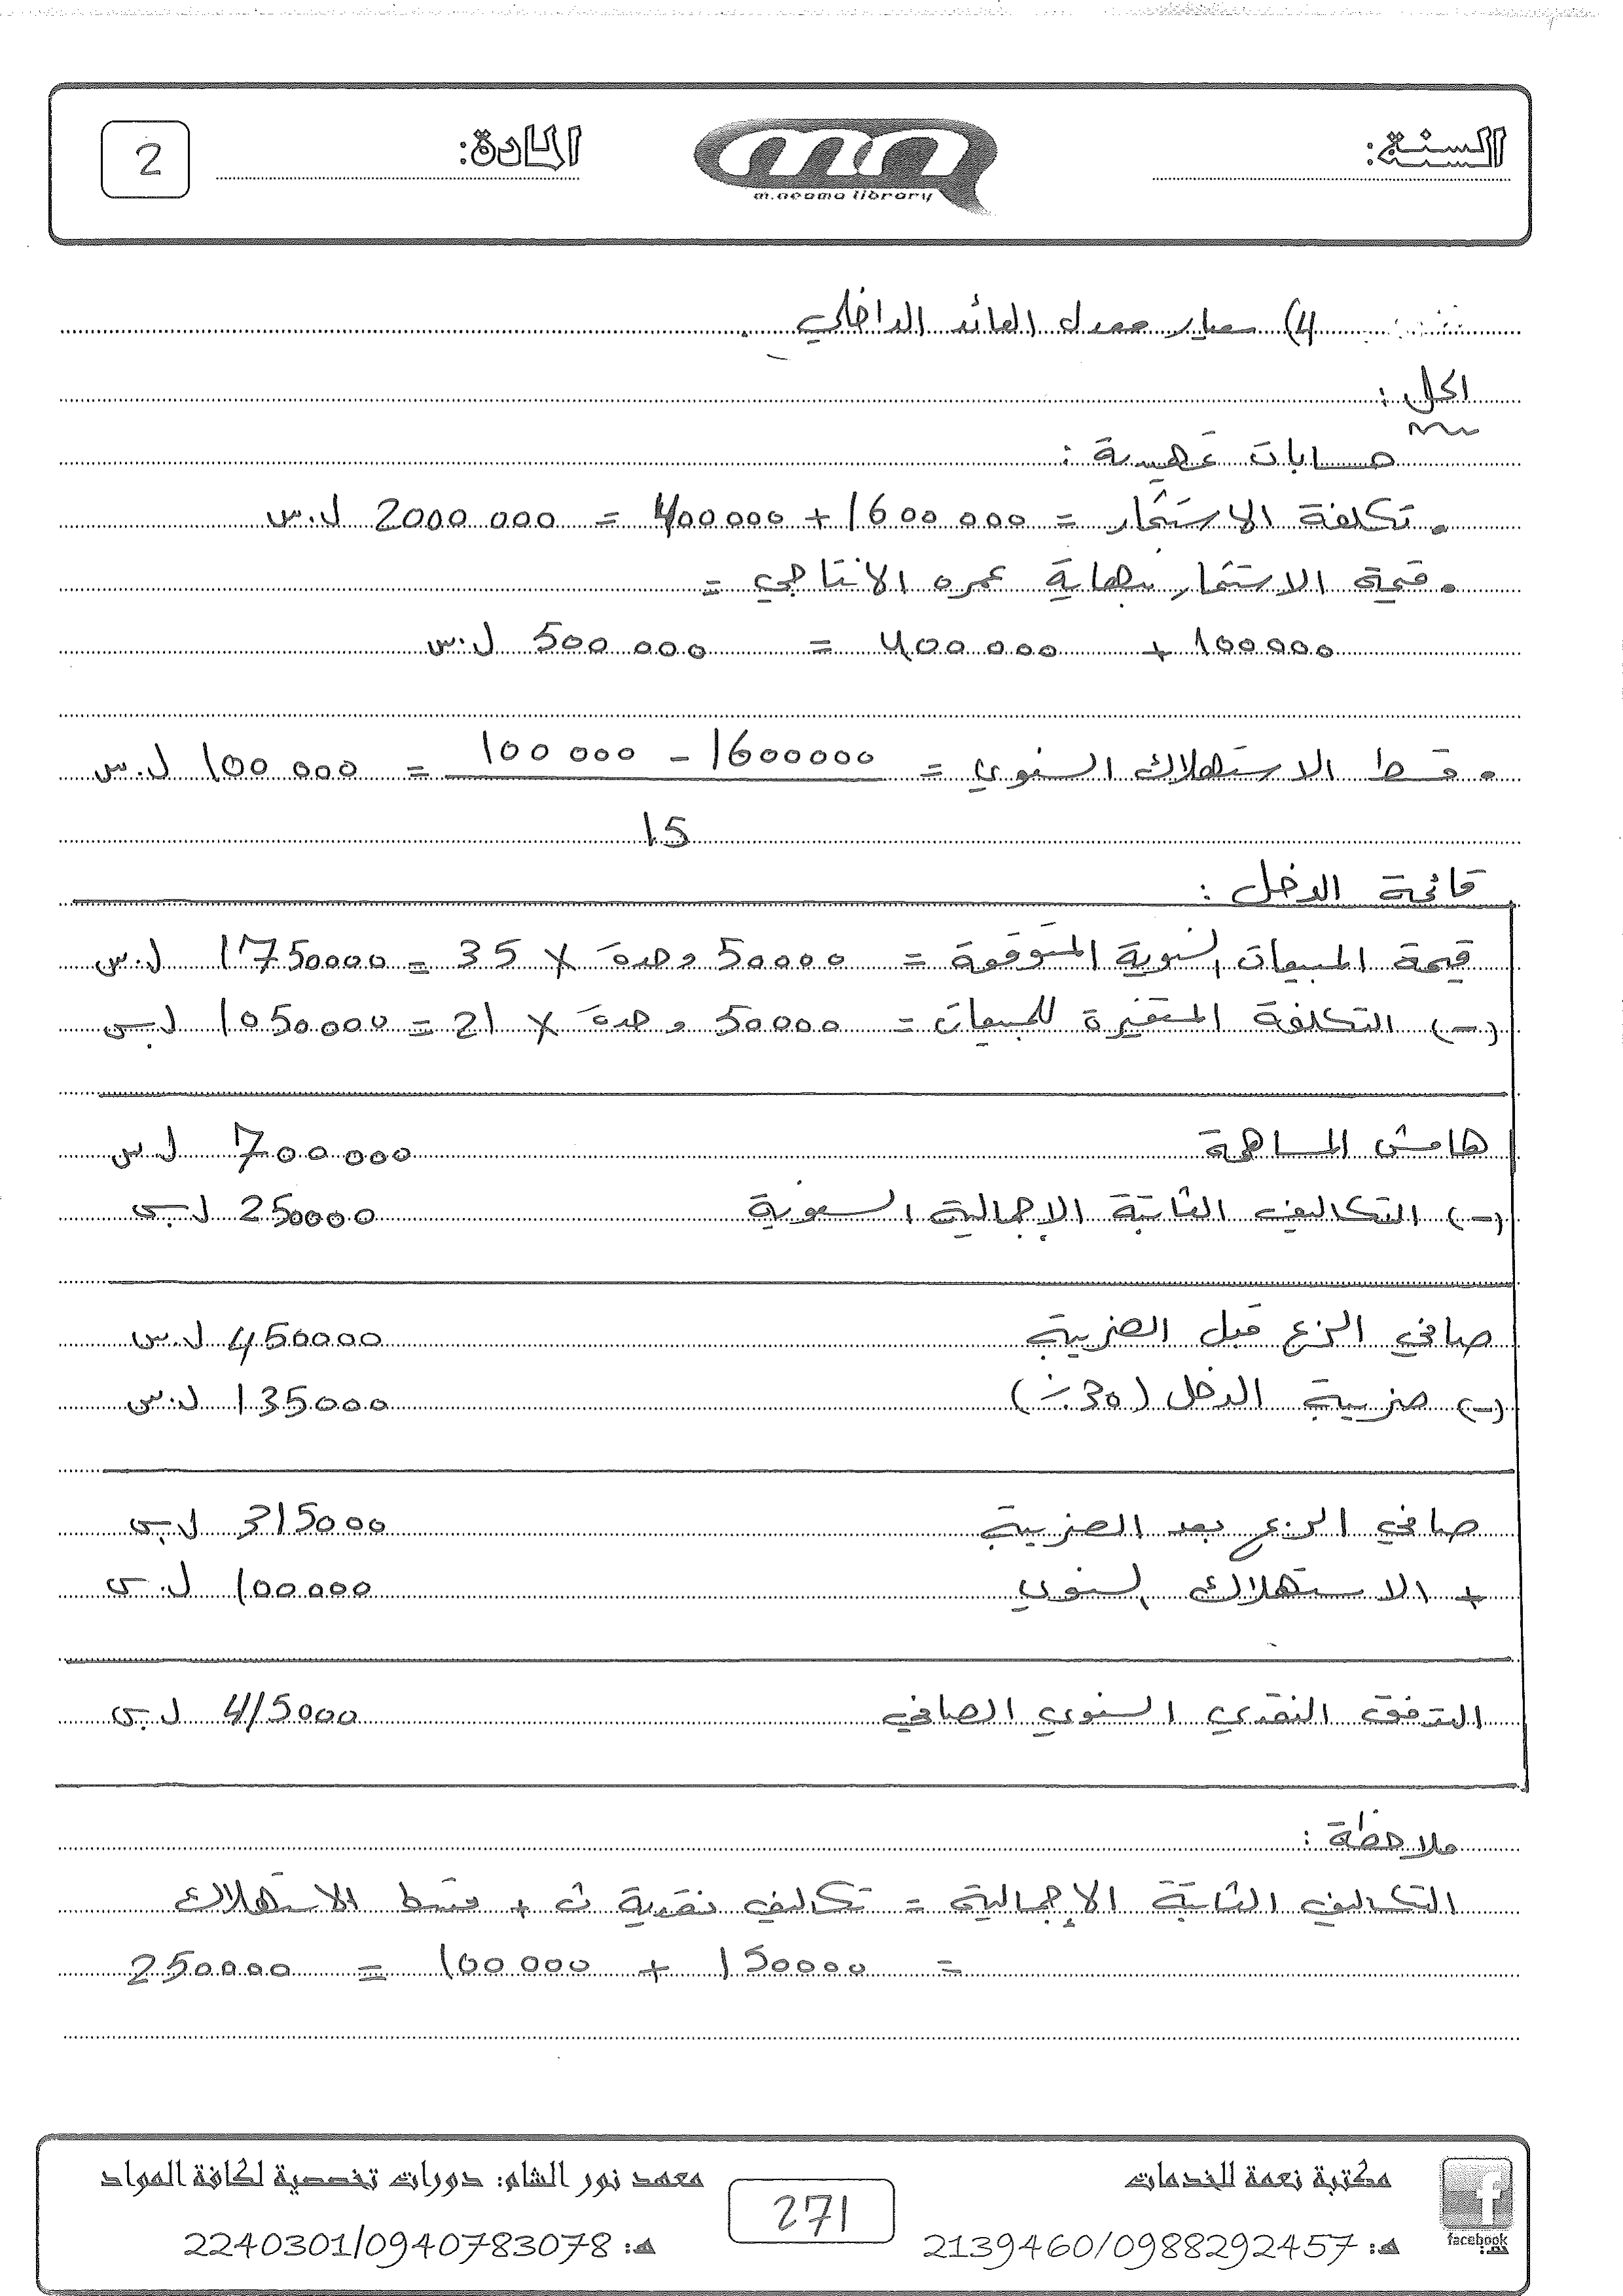 السنة:
المادة:
2
m.neama library
4) معيار معدل العائد الداخلي.
الحل:
حسابات تمهيدية:
• تكلفة الاستثمار = 1600 000 + 400000 = 2000 000 ل.س
• قيمة الاستثمار بنهاية عمره الانتاجي =
100000 + 400 000 = 500 000 ل.س
• قسط الاستهلاك السنوي = 1600000 - 100 000 = 100 000 ل.س
15
قائمة الدخل:
قيمة المبيعات السنوية المتوقعة = 50000 وحدة × 35 = 1750000 ل.س
(-) التكلفة المتغيرة للمبيعات = 50000 وحدة × 21 = 1050000 ل.س
هامش المساهمة 700 000 ل.س
(-) التكاليف الثابتة الإجمالية السنوية 250000 ل.س
صافي الربح قبل الضريبة 450000 ل.س
(-) ضريبة الدخل (30٪) 135000 ل.س
صافي الربح بعد الضريبة 315000 ل.س
+ الاستهلاك السنوي 100000 ل.س
التدفق النقدي السنوي الصافي 415000 ل.س
ملاحظة:
التكاليف الثابتة الإجمالية = تكاليف نقدية ث + قسط الاستهلاك
= 150000 + 100 000 = 250000
مكتبة نعمة للخدمات
هـ: 2139460/0988292457
271
معهد نور الشام: دورات تخصصية لكافة المواد
هـ: 2240301/0940783078
facebook